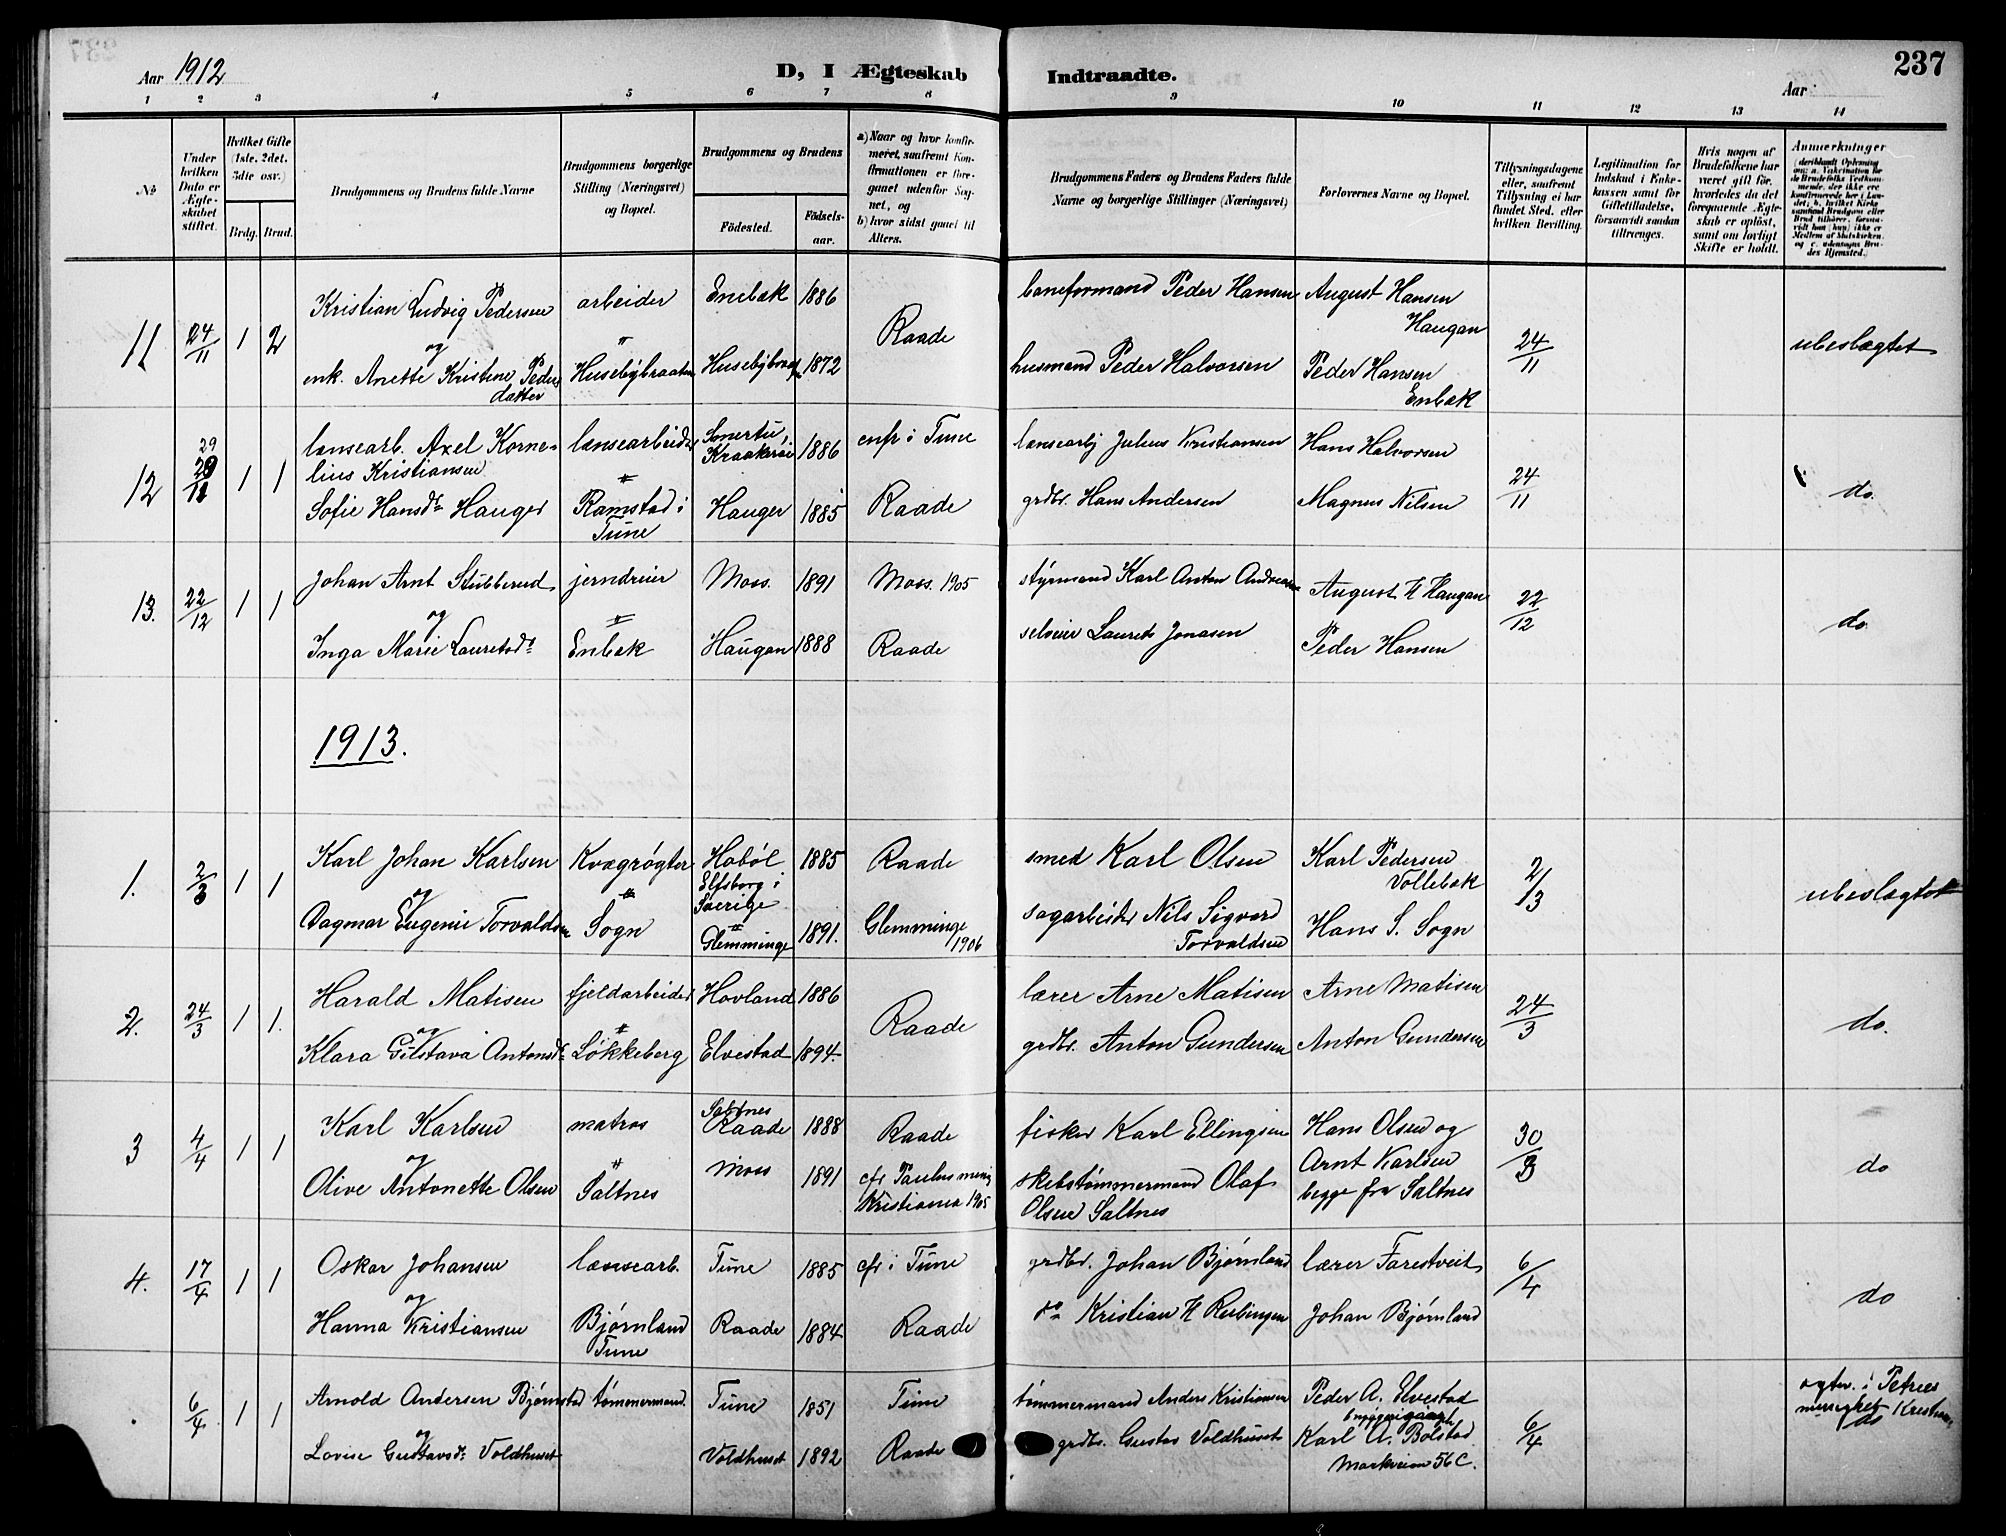 Aar 1912
D, I Ægteskab Indtraadte.
Aar
237
1 2 3 4 5 6 7 8 9 10 11 12 13 14
№
Under hvilken Dato er Ægteskabet stiftet.
Hvilket Gifte (1ste, 2det, 3die osv.)
Brdg. Brud.
Brudgommens og Brudens fulde Navne
Brudgommens borgerlige Stilling (Næringsvei) og Bopæl.
Brudgommens og Brudens
Födested.
Födselsaar.
a) Naar og hvor konfirmeret, saafremt Konfirmationen er foregaaet udenfor Sognet, og
b) hvor sidst gaaet til Alters.
Brudgommens Faders og Brudens Faders fulde Navne og borgerlige Stillinger (Næringsvei)
Forlovernes Navne og Bopæl.
Tillysningsdagene eller, saafremt Tillysning ei har fundet Sted, efter hvilken Bevilling.
Legitimation for Indskud i Enkekassen samt for Giftetilladelse, forsaavidt saadan tiltrænges.
Hvis nogen af Brudefolkene har været gift før, hvorledes da det foregaaende Ægteskab er oplöst, samt om lovligt Skifte er holdt.
Anmerkninger
11 24/11 1 2
Kristian Ludvig Pedersen arbeider Enebæk 1886
og " Raade
enk. Anette Kristine Peders datter Husebybraaten 1872
baneformand Peder Hansen August Hansen Haugan
husmand Peder Halvorsen Peder Hansen Enbæk
24/11 ubeslægtet
12 29 1 1
lænsearb. Axel Kornelius Kristiansen lænsearbeider 1886 cnfr i Tune
Sofie Hansdr Hauger Ramstad i Tune Hauger 1885 Raade
lænsearbj Julius Kristiansen Hans Halvorsen
grdbr. Hans Andersen Magnus Nilsen
24/11 do.
13. 22/12 1 1
Johan Arnt Stubberud jerndreier Moss. 1891 Moss. 1905
og "
Inga Marie Lauretsdr Enbæk Haugan 1888 Raade
styrmand Karl Anton Andreasen August H Haugan
selveier Laurets Jonasen Peder Hansen
22/12 do.
1913.
1. 2/3 1 1
Karl Johan Karlsen Kvægrøgter Hobøl 1885 Raade
og " Elfsborg i Sverige
Dagmar Eugenie Torvaldsen Sogn Glemminge 1891. Glemminge 1906
smed Karl Olsen Karl Pedersen Vollebæk
sagarbeider Nils Sigvard Torvaldsen Hans S. Sogn
2/3 ubeslægtet
2. 24/3 1 1.
Harald Matisen fjeldarbeider Hovland 1886
og " Raade
Klara Gustava Antonsdr Løkkeberg Elvestad 1894.
lærer Arne Matisen Arne Matisen
grdbr. Anton Gundersen Anton Gundersen
24/3 do.
3 4/4 1 1
Karl Karlsen matros Saltnes Raade 1888 Raade
og "
Olive Antonette Olsen Saltnes Moss 1891 cfr Paulus menig Kristiania 1905
fisker Karl Ellingsen Hans Olsen og
skibstømmermand Olaf Olsen Saltnes Arnt Karlsen begge fra Saltnes
30/3 do
4. 17/4 1 1
Oskar Johansen lænsearb. Tune 1885 cfr i Tune
og
Hanna Kristiansen Bjørnland Tune Raade 1884 Raade
grdbr. Johan Bjørnland lærer Farestveit
do Kristian H Johan Bjørnland
6/4 do
6/4 1 1
Arnold Andersen Bjørnstad tømmermand. Tune 1851 Tune
og
Lovise Gustavsdr Voldhuset Voldhuset 1892 Raade
tømmermand Anders Kristiansen Peder A. Elvestad
grdbr. Gustav Voldhuset Karl A. Bolstad
Markveien 56 C.
6/4 i Petrus menighet do